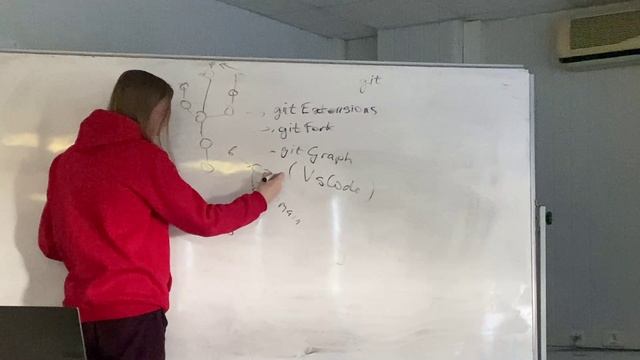 git
gitExtensions
gitFork
- gitGraph
(VsCode)
main